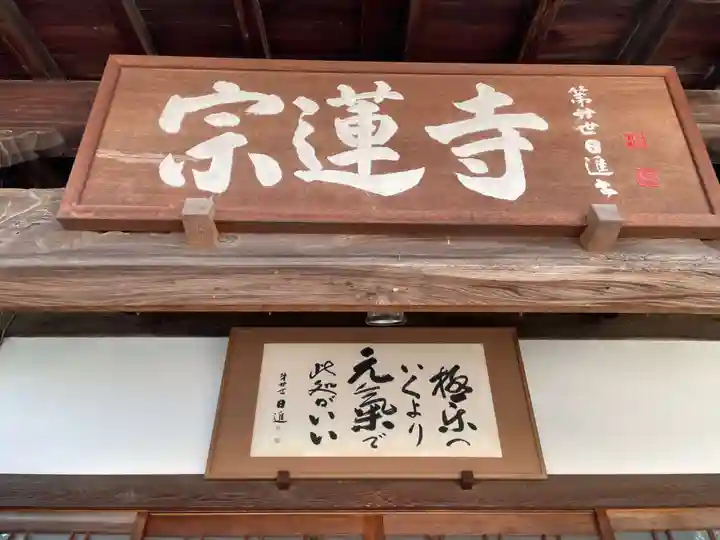 宗蓮寺
第廿世日進書
極楽へ
いくより
元氣で
此処がいい
第廿世日進